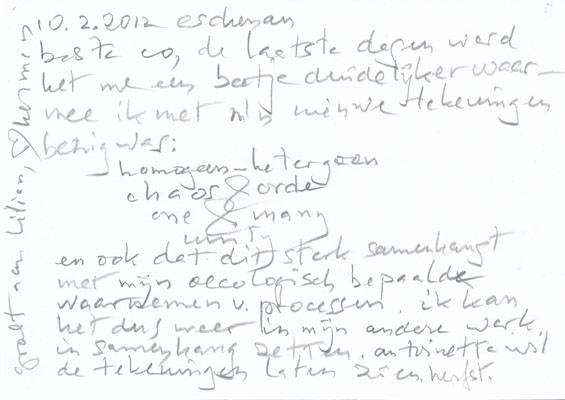 10.2.2012 eschenau
beste co, de laatste dagen werd
het me een beetje duidelijker waar-
mee ik met mijn nieuwe tekeningen
bezig was:
homogeen-hetergoon
chaos & orde
one & many
unity
en ook dat dit sterk samenhangt
met mijn oecologisch bepaalde
waarnemen v. processen. ik kan
het dus weer in mijn andere werk.
in samenhang zetten. antoinette wil
de tekeningen laten zien herfst.
groet aan lilian, ♡ herman